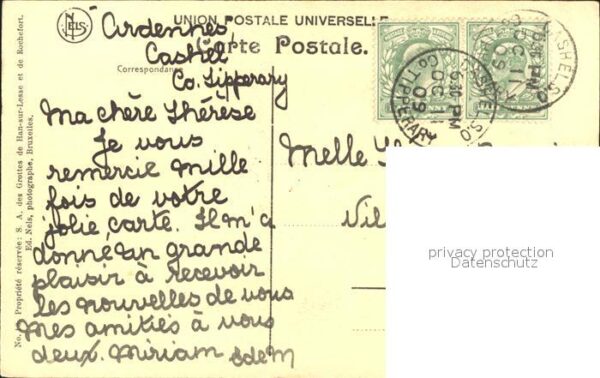 UNION POSTALE UNIVERSELLE
Carte Postale.
Correspondance
NELS
"Ardennes"
Cashel
Co. Tipperary
Ma chère Thérèse
Je vous
remercie mille
fois de votre
jolie carte. Il m'a
donné un grande
plaisir à recevoir
les nouvelles de vous
Mes amitiés à vous
deux. Miriam
Melle
Vil
CASHEL S.O
6.30 PM
DC 11
09
CO. TIPPERARY
CASHEL S.O
6.30 PM
DC 11
09
privacy protection
Datenschutz
Propriété réservée: S. A. des Grottes de Han-sur-Lesse et de Rochefort.
Ed. Nels, photographe, Bruxelles.